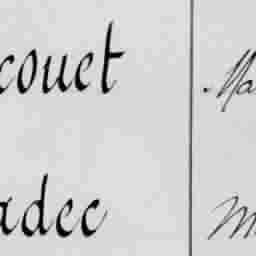 couet Ma
adec M